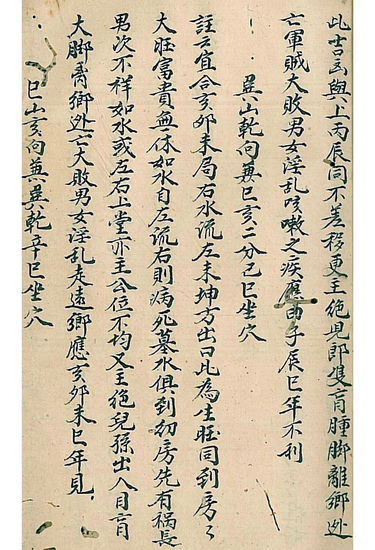 此吉凶與上丙辰同不差移更主絶兒郎雙盲腫脚離鄉处
亡軍賊大敗男女淫乱咳嗽之疾應申子辰巳年不利
巽山乾向兼巳亥二分己巳坐穴
註云宜合亥卯未局右水流左未坤方出口此為生旺同到房〻
大旺富貴無休如水自左流右則病死墓水俱到初房先有禍長
男次不祥如水或左右上堂亦主公位不均又主絶兒孫出入目盲
大脚膏鄉处亡大敗男女淫乱走遠鄉應亥卯未巳年見
巳山亥向兼巽乾辛巳坐穴